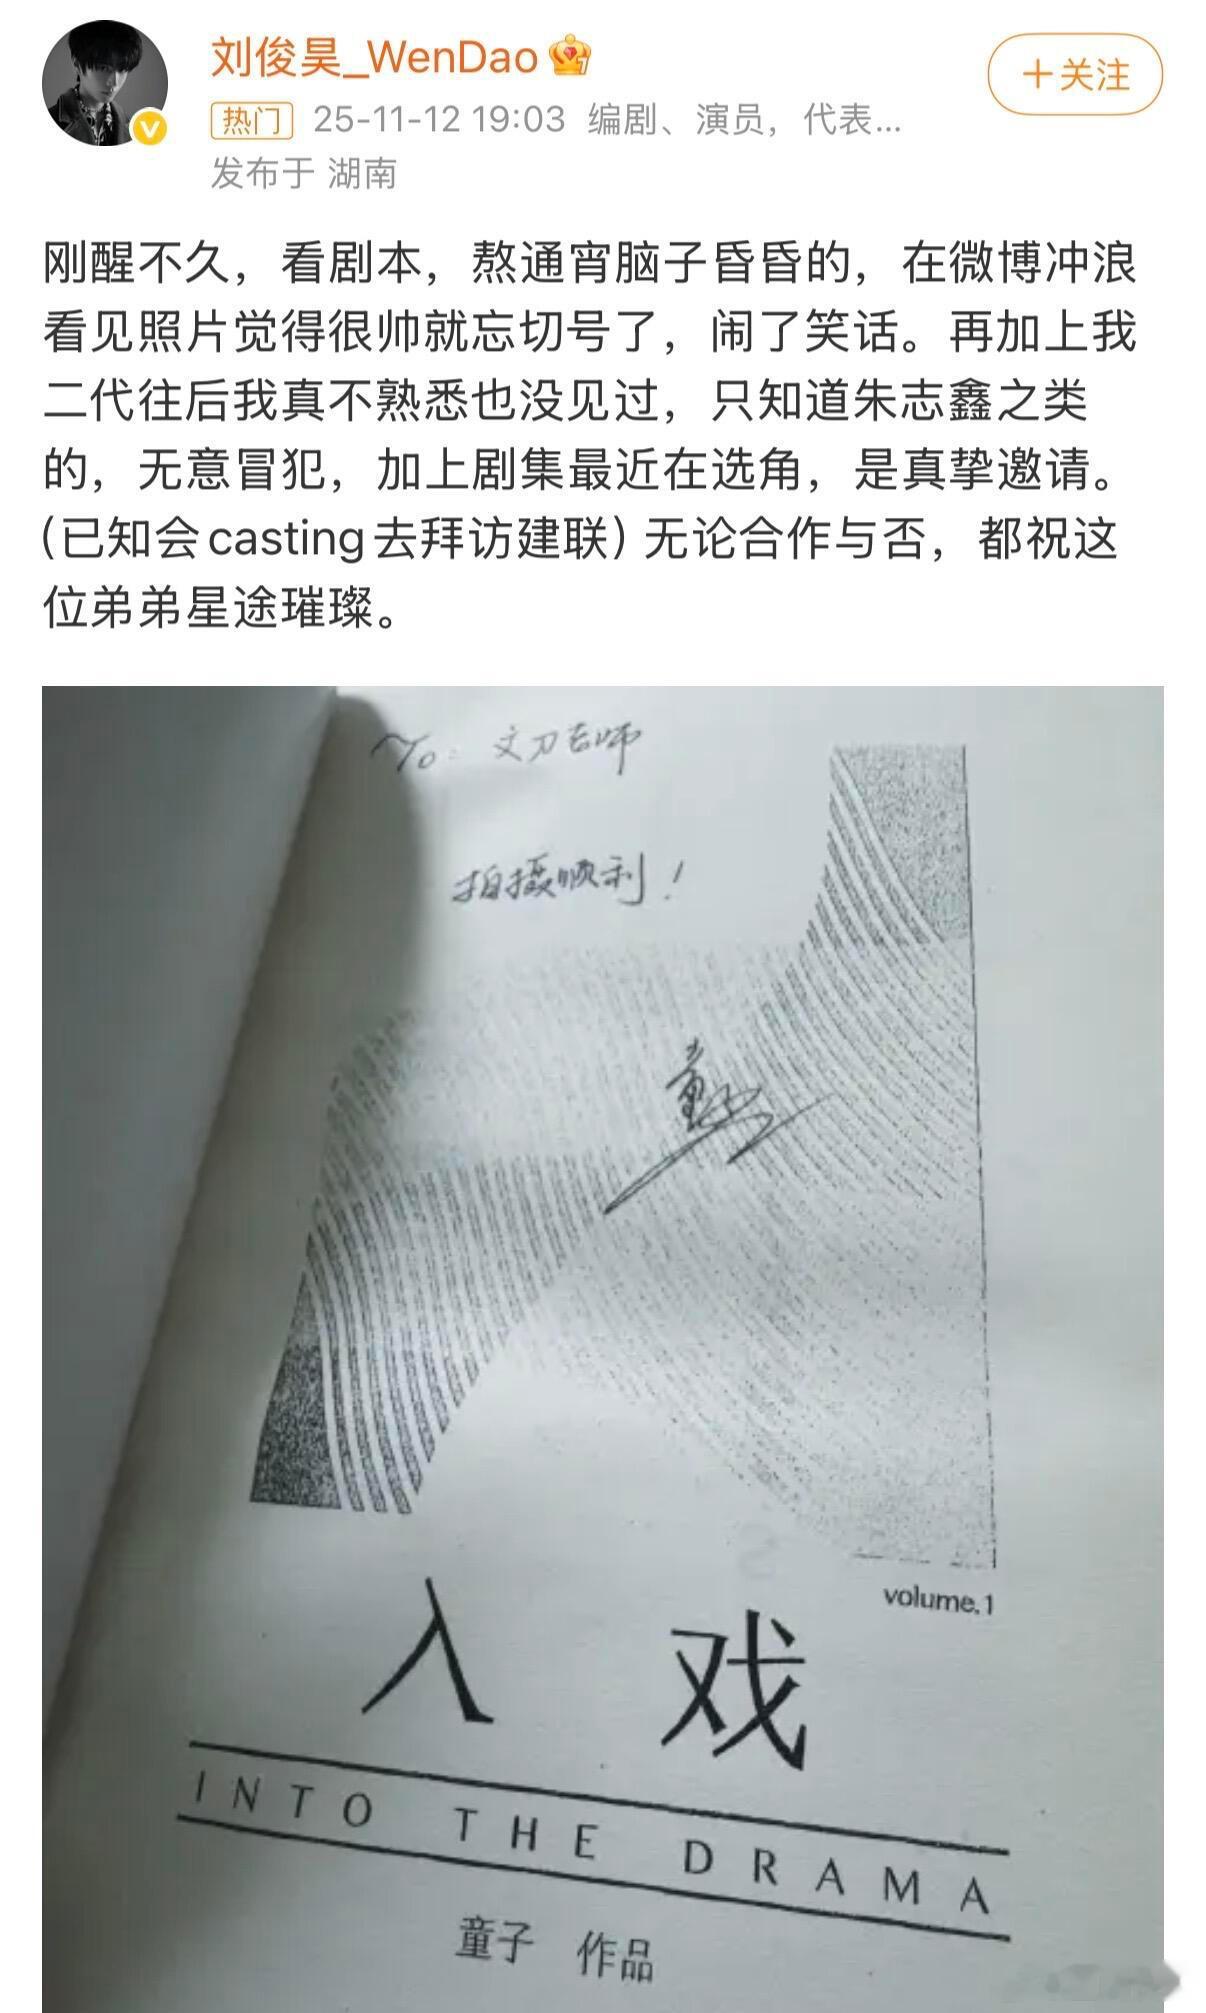 刘俊昊_WenDao
+关注
热门 25-11-12 19:03 编剧、演员，代表...
发布于 湖南
刚醒不久，看剧本，熬通宵脑子昏昏的，在微博冲浪
看见照片觉得很帅就忘切号了，闹了笑话。再加上我
二代往后我真不熟悉也没见过，只知道朱志鑫之类
的，无意冒犯，加上剧集最近在选角，是真挚邀请。
（已知会casting去拜访建联）无论合作与否，都祝这
位弟弟星途璀璨。
To：文刀老师
拍摄顺利！
童子
volume.1
入 戏
INTO THE DRAMA
童子 作品